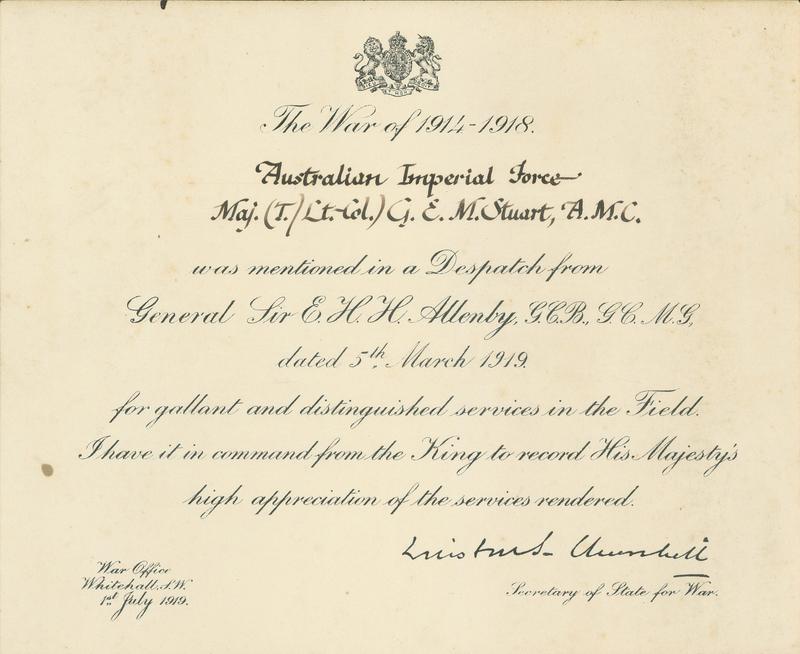 The War of 1914-1918.
Australian Imperial Force
Maj. (T./Lt.-Col.) G. E. M. Stuart, A.M.C.
was mentioned in a Despatch from
General Sir E. H. H. Allenby, G.C.B., G.C.M.G,
dated 5th March 1919.
for gallant and distinguished services in the Field.
I have it in command from the King to record His Majesty's
high appreciation of the services rendered.
Winston S. Churchill
War Office
Whitehall, S.W.
1st July 1919.
Secretary of State for War.